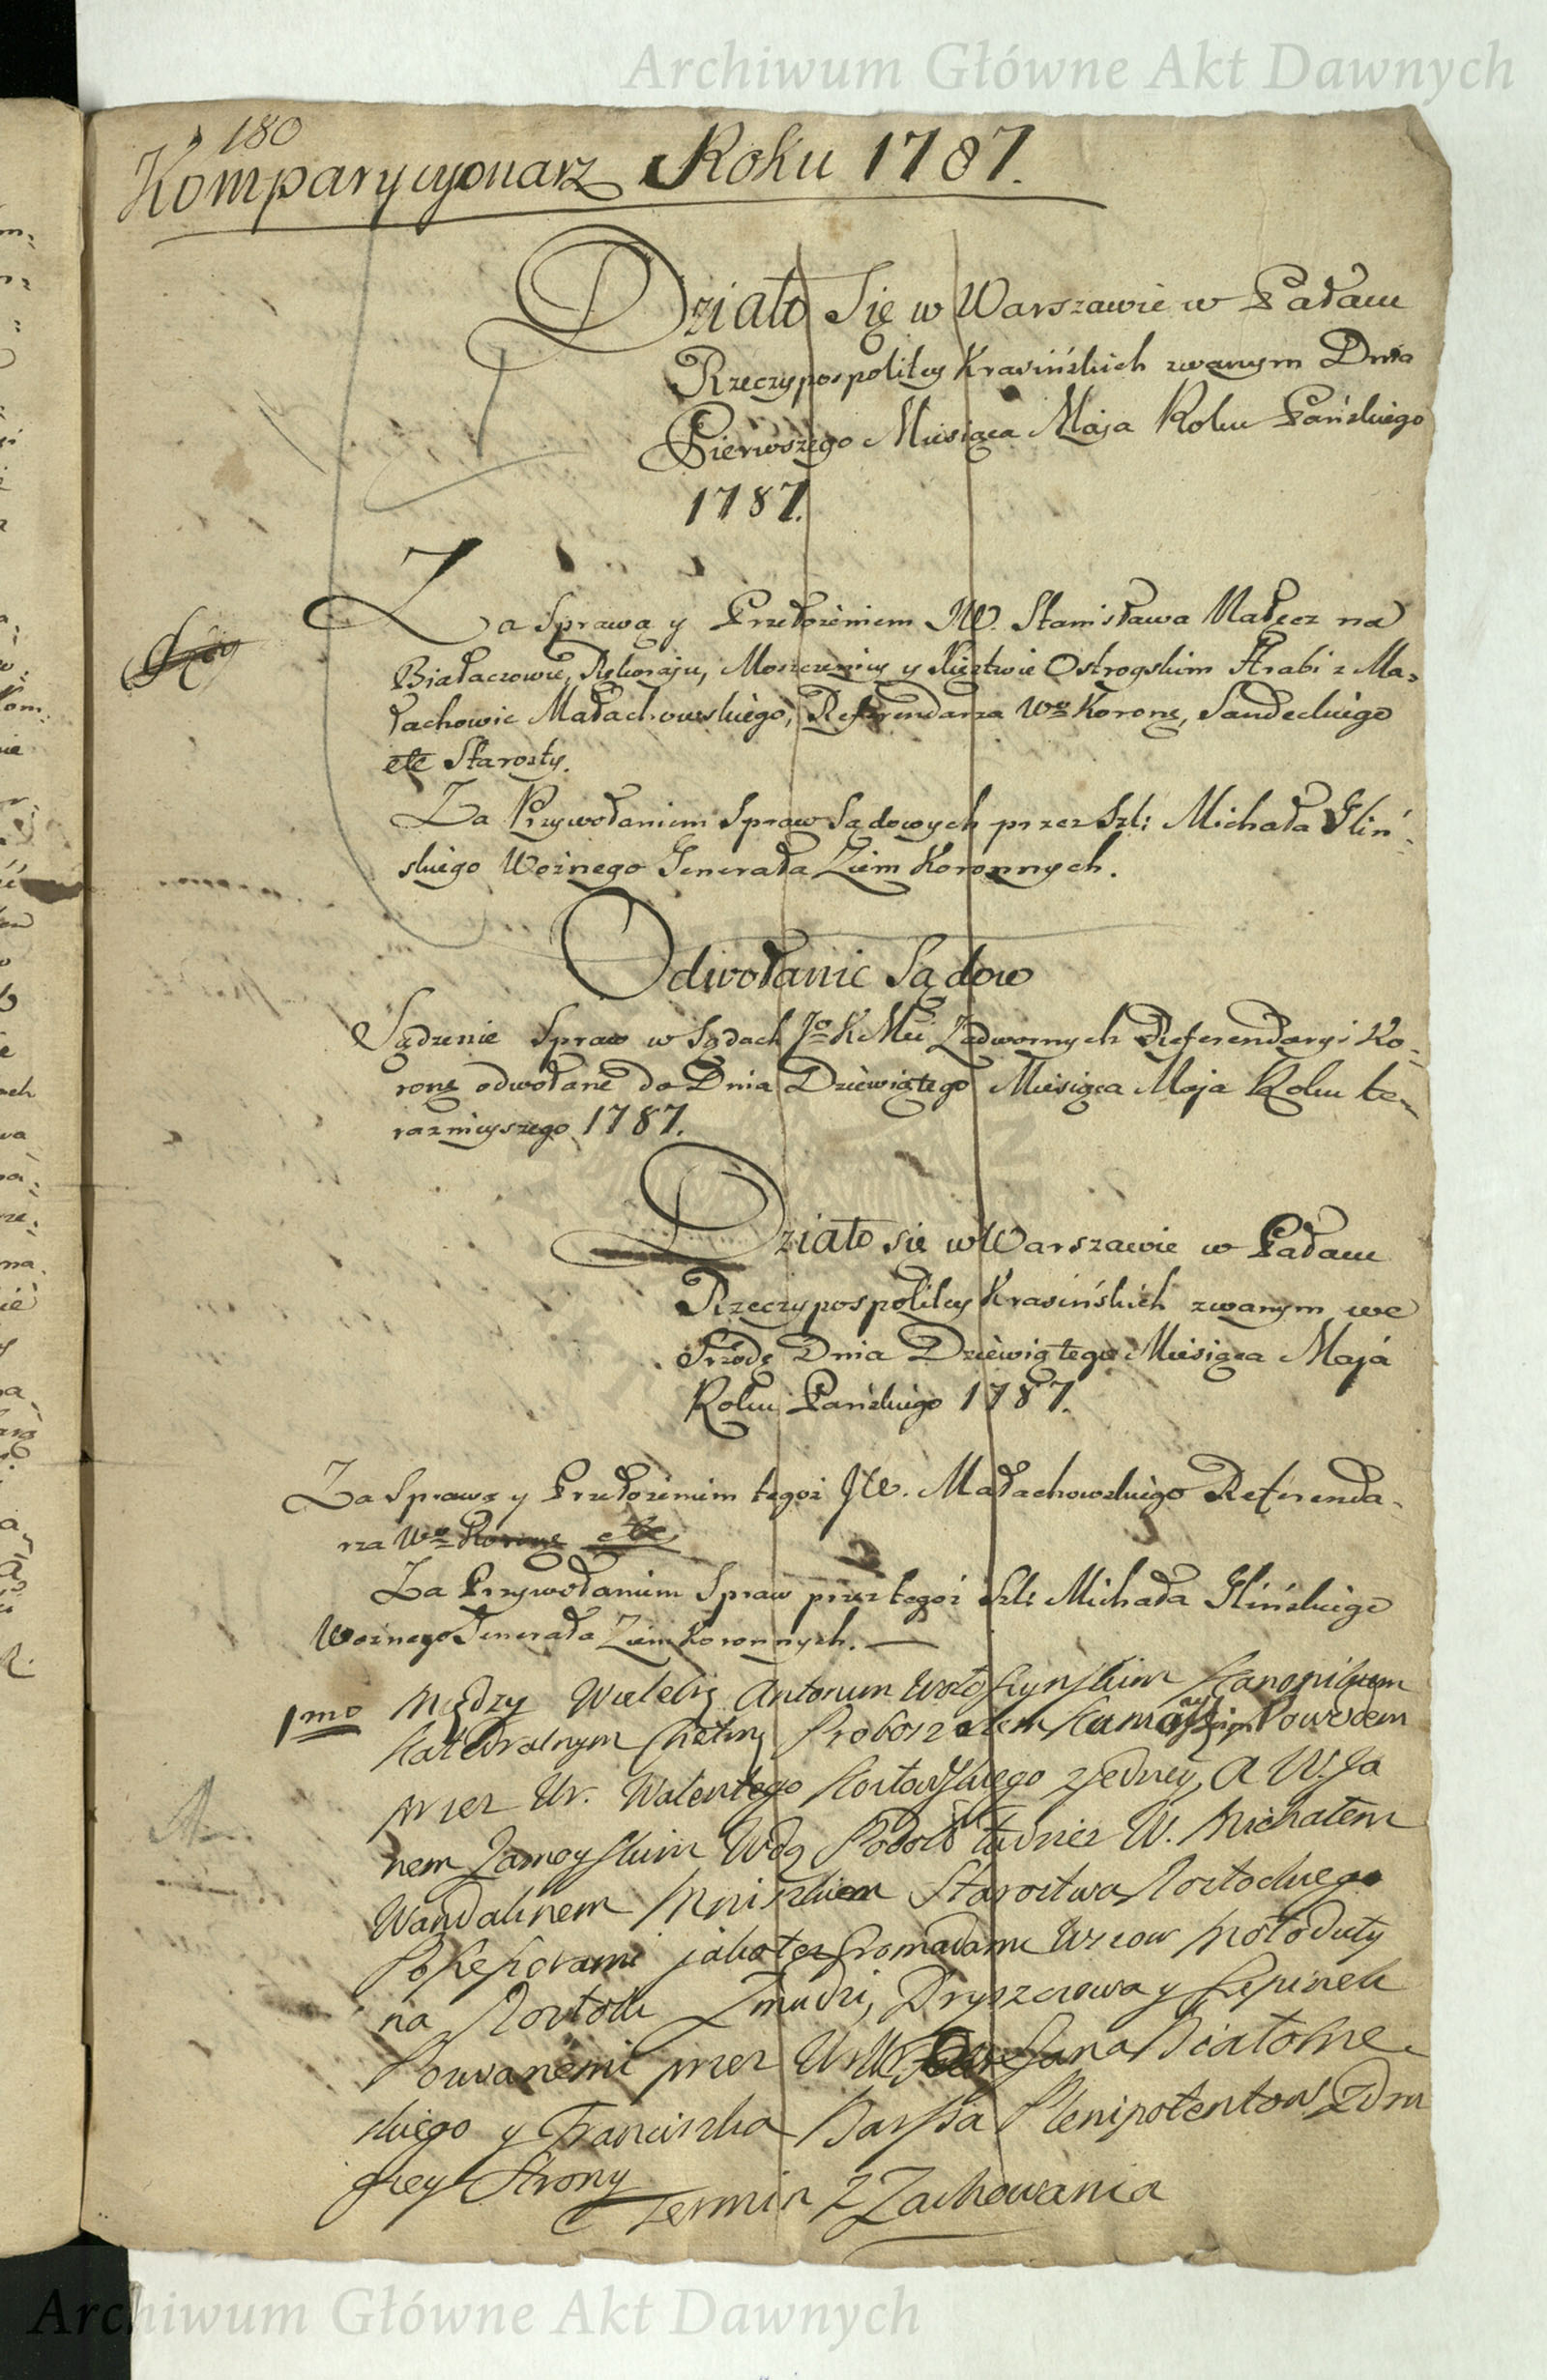 Archiwum Główne Akt Dawnych
180
Komparycyonarz Roku 1787.
Działo Się w Warszawie w Pałacu
Rzeczypospolitey Krasińskich zwanym Dnia
Pierwszego Miesiąca Maja Roku Pańskiego
1787.
Za Sprawą y Przełożeniem JW. Stanisława Nałęcz na
Białaczowie, Rękoraju, Moszczenicy y Xięztwie Ostrogskim Hrabi z Ma=
łachowic Małachowskiego, Referendarza Wo Koronę, Sandeckiego
etc Starosty.
Za Przywołaniem Spraw Sądowych przez Szl: Michała Gliń=
skiego Woźnego Generała Ziem Koronnych.
Odwołanie Sądow
Sądzenie Spraw w Sądach Jo K Mci Zadwornych Referendaryi Ko=
ronę odwołane do Dnia Dziewiątego Miesiąca Maja Roku te=
raznieyszego 1787.
Działo się w Warszawie w Pałacu
Rzeczypospolitey Krasińskich zwanym we
Srzodę Dnia Dziewiątego Miesiąca Maja
Roku Pańskiego 1787.
Za Sprawą y Przełożeniem tegoż JW. Małachowskiego Referenda=
rza Wo Koronę etc
Za Przywołaniem Spraw przez tegoż Szl: Michała Glińskiego
Woznego Generała Ziem Koronnych.
1mo Między Wielebę Antonim Kanonikiem
Katedralnym Chełmę Proboszczem Powodem
przez Ur. Walentego Kozłowskiego z jedney, A W. Ja
nem Zamoyskim Wdą Podols tudziez W. Michałem
Wandalinem Mniszkiem Starostwa
Possessorami jako tez Gromadami Wsiow Mołoduty
na Zmudzi, Dryszczowa y
Pozwanemi przez Jana Białobrze
skiego y Franciszka Barssa Plenipotentow z Dru
giey Strony
Termin z Zachowania
Archiwum Główne Akt Dawnych